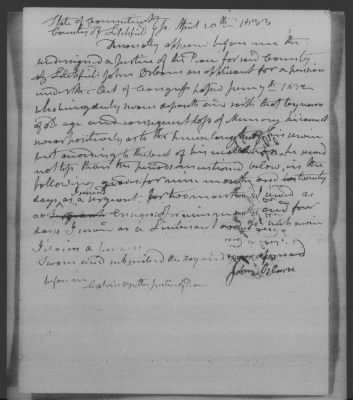 State of Connecticut
County of Litchfield Ss. April 20th 1833
Personally appeared before me the
undersigned a Justice of the Peace for said County
of Litchfield John Osborn an applicant for a pension
under the Act of Congress passed June 7th 1832
who being duly sworn deposeth and saith that by reason
of old age and consequent loss of Memory he cannot
swear positively as to the precise length of his service
but according to the best of his recollection he served
not less than the periods mentioned below, in the
following grades for nine months and
days, I served as a sergeant. For two months I served as
as Ensign & for nine months and four
days I served as a Lieutenant and for such service
I claim a pension
Sworn and subscribed the day and year aforesaid
before me
Calvin Butler Justice of Peace
John Osborn